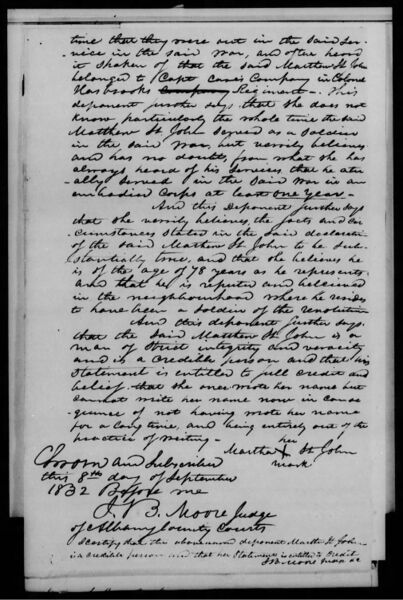 time that they were out in the said Ser-
vice in the said War, and often heard
it spoken of that the said Matthew St John
belonged to Capt Cases Company in Colonel
Hasbrooks Company Regiment - This
deponent further says that she does not
know particularly the whole time the said
Matthew St John served as a Soldier
in the said War, but verrily believes
and has no doubts from what she has
always heard of his services that he actu-
ally served in the said War in an
embodied Corps at least one Year -
And this Deponent further says
that she verrily believes, the facts and Cir-
cumstances stated in the said declaration
of the said Mathew St John to be sub-
stantially true, and that she believes he
is of the age of 78 years as he represents
and that he is reputed and believed
in the neighbourhood where he resides
to have been a Soldier of the revolution
And this deponent further says
that the said Matthew St John is a
man of Strict integrity and veracity
and is a credible person and that his
statement is entitled to full credit and
belief - that she once wrote her name but
cannot write her name now in conse
quence of not having wrote her name
for a long time, and being entirely out of the
practice of writing -
her
Martha X St John
mark
Sworn and Subscribed
this 8th day of September
1832 Before me
J B. Moore Judge
of Albany County Courts
I certify that the above named deponent Martha St John
is a credible person and that her Statement is entitled to Credit